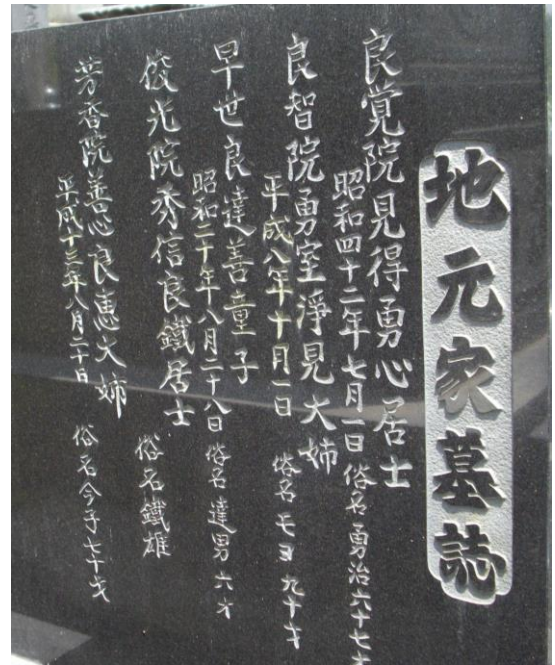 地元家墓誌
良覚院見得勇心居士
昭和四十二年七月一日 俗名 勇治 六十七才
良智院勇室淨見大姉
平成八年十月一日 俗名 モヨ 九十才
早世良達善童子
昭和二十年八月二十八日 俗名 達男 六才
俊光院秀信良鐵居士
俗名 鐵雄
芳香院善心良恵大姉
平成十三年八月二十日 俗名 今子 七十才